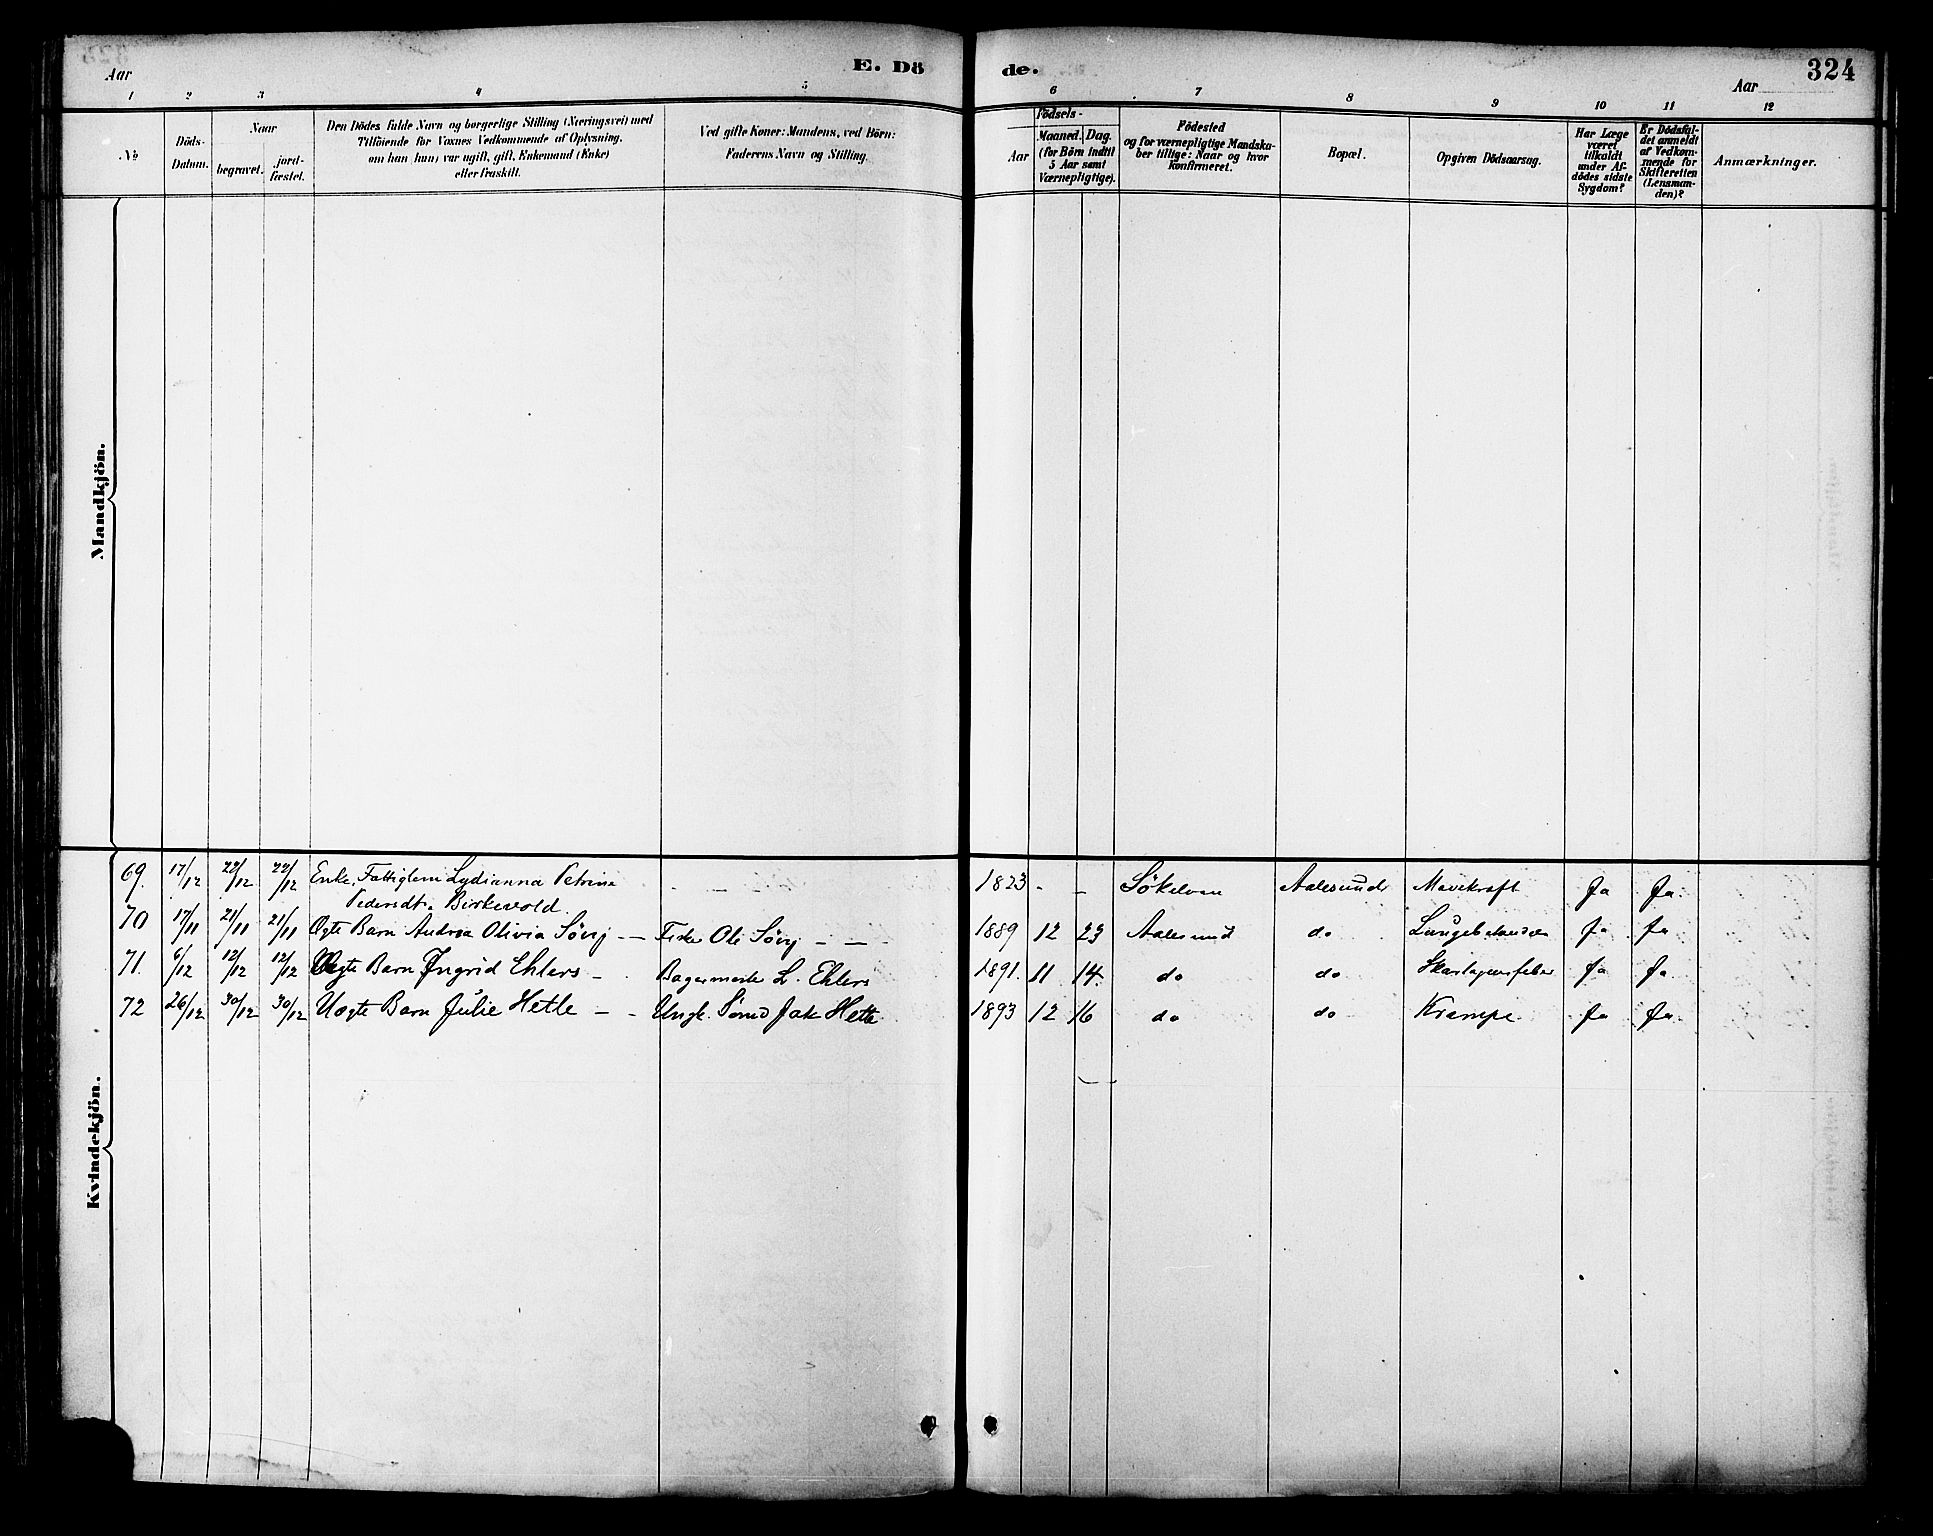 Aar
E. Dö
de.
Aar
324
1 2 3 4 5 6 7 8 9 10 11 12
No
Döds-
Datum.
Naar
begravet.
jord-
fæstet.
Den Dödes fulde Navn og borgerlige Stilling (Næringsvei) med
Tilföiende for Voxnes Vedkommende af Oplysning,
om han (hun) var ugift, gift, Enkemand (Enke)
eller fraskilt.
Ved gifte Koner: Mandens, ved Börn:
Faderens Navn og Stilling.
Födsels-
Aar
Maaned. Dag.
(for Börn indtil
5 Aar samt
Værnepligtige).
Födested
og for værnepligtige Mandska-
ber tillige: Naar og hvor
konfirmeret.
Bopæl.
Opgiven Dödsaarsag.
Har Læge
været
tilkaldt
under Af-
dödes sidste
Sygdom?
Er Dödsfal-
det anmeldt
af Vedkom-
mende for
Skifteretten
(Lensman-
den)?
Anmærkninger.
Mandkjön.
Kvindekjön.
69. 17/12 22/12 22/12 Enke, Fattiglem Lydianna Petrine - - 1823 - - Sökelven Aalesund Mavekræft Ja Ja
Pedersdt. Birkevold
70 17/11 21/11 21/11 Ægte Barn Andrea Olivia Sövij - - Fisker Ole Sövij - - 1889 12 23 Aalesund do Ja Ja
71. 6/12 12/12 12/12 Ægte Barn Ingrid Ehlers - Bagermester L. Ehlers 1891. 11 14. do do Skarlagensfeber Ja Ja
72 26/12 30/12 30/12 Uægte Barn Julie Hetle - - Ungk. Sömd Jak Hetle 1893 12 16 do do Krampe Ja Ja